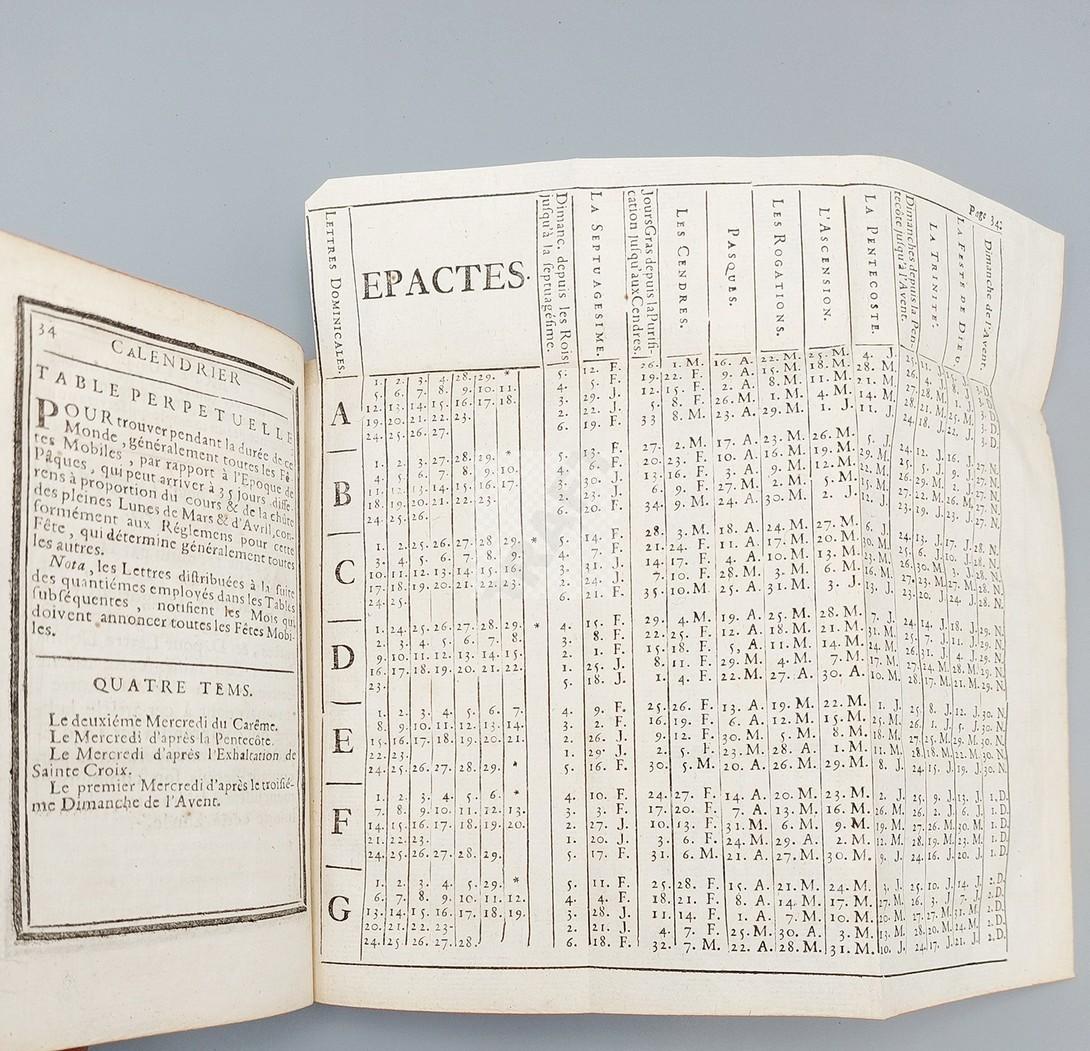 34
CALENDRIER
TABLE PERPETUELLE
POUR trouver pendant la durée de ce
Monde, généralement toutes les Fê-
tes Mobiles, par rapport à l'Epoque de
Pâques, qui peut arriver à 35 jours diffe-
rens à proportion du cours & de la chûte
des pleines Lunes de Mars & d'Avril, con-
formément aux Réglemens pour cette
Fête, qui détermine généralement toutes
les autres.
Nota, les Lettres distribuées à la suite
des quantiémes employés dans les Tables
subséquentes, notifient les Mois qui
doivent annoncer toutes les Fêtes Mobi-
les.
QUATRE TEMS.
Le deuxiéme Mercredi du Carême.
Le Mercredi d'après la Pentecôte.
Le Mercredi d'après l'Exhaltation de
Sainte Croix.
Le premier Mercredi d'après le troisié-
me Dimanche de l'Avent.
Page 34.
LETTRES DOMINICALES.
EPACTES.
Dimanc. depuis les Rois
jusqu'à la septuagésime.
LA SEPTUAGESIME.
Jours Gras depuis la Purifi-
cation jusqu'aux Cendres.
LES CENDRES.
PASQUES.
LES ROGATIONS.
L'ASCENSION.
LA PENTECOSTE.
Dimanches depuis la Pen-
tecôte jusqu'à l'Avent.
LA TRINITE.
LA FESTE DE DIEU.
Dimanche de l'Avent.
A
1. 2. 3. 4. 28. 29. * 5. 12. F. 26. 1. M. 16. A. 22. M. 25. M. 4. J.
5. 6. 7. 8. 9. 10. 11. 4. 5. F. 19. 22. F. 9. A. 15. M. 18. M. 28. M.
12. 13. 14. 15. 16. 17. 18. 3. 29. J. 12. 15. F. 2. A. 8. M. 11. M. 21. M.
19. 20. 21. 22. 23. 2. 22. J. 5. 8. F. 26. M. 1. M. 4. M. 14. M.
24. 25. 26. 27. 6. 19. F. 33 8. M. 23. A. 29. M. 1. J. 11. J. 24. 18. J. 22. J. 3. D.
B
1. 2. 3. 27. 28. 29. * 5. 13. F. 27. 2. M. 17. A. 23. M. 26. M. 5. J. 24. 12. J. 16. J. 27. N.
4. 5. 6. 7. 8. 9. 10. 4. 6. F. 20. 23. F. 10. A. 16. M. 19. M. 29. M. 25. 5. J. 9. J. 27. N.
11. 12. 13. 14. 15. 16. 17. 3. 30. J. 13. 16. F. 3. A. 9. M. 12. M. 22. M. 26. 29. M. 2. J. 27. N.
18. 19. 20. 21. 22. 23. 2. 23. J. 6. 9. F. 27. M. 2. M. 5. M. 15. M. 27. 22. M. 26. M. 27. N.
24. 25. 26. 6. 20. F. 34. 9. M. 24. A. 30. M. 2. J. 12. J. 23. 19. J. 23. J. 27. N.
C
1. 2. 25. 26. 27. 28. 29. * 5. 14. F. 28. 3. M. 18. A. 24. M. 27. M. 6. J. 24. 13. J. 17. J. 28. N.
3. 4. 5. 6. 7. 8. 9. 4. 7. F. 21. 24. F. 11. A. 17. M. 20. M. 30. M. 25. 6. J. 10. J. 28. N.
10. 11. 12. 13. 14. 15. 16. 3. 31. J. 14. 17. F. 4. A. 10. M. 13. M. 23. M. 26. 30. M. 3. J. 28. N.
17. 18. 19. 20. 21. 22. 23. 2. 24. J. 7. 10. F. 28. M. 3. M. 6. M. 16. M. 27. 23. M. 27. M. 28. N.
24. 25. 6. 21. F. 35. 10. M. 25. A. 31. M. 3. J. 13. J. 23. 20. J. 24. J. 28. N.
D
1. 24. 25. 26. 27. 28. 29. * 4. 15. F. 29. 4. M. 19. A. 25. M. 28. M. 7. J. 24. 14. J. 18. J. 29. N.
2. 3. 4. 5. 6. 7. 8. 3. 8. F. 22. 25. F. 12. A. 18. M. 21. M. 31. M. 25. 7. J. 11. J. 29. N.
9. 10. 11. 12. 13. 14. 15. 2. 1. F. 15. 18. F. 5, A. 11. M. 14. M. 24. M. 26. 31. M. 4. J. 29. N.
16. 17. 18. 19. 20. 21. 22. 1. 25. J. 8. 11. F. 29. M. 4. M. 7. M. 17. M. 27. 24. M. 28. M. 29. N.
23. 5. 18. J. 1. 4. F. 22. M. 27. A. 30. A. 10. M. 28. 17. M. 21. M. 29. N.
E
1. 2. 3. 4. 5. 6. 7. 4. 9. F. 25. 26. F. 13. A. 19. M. 22. M. 1. J. 25. 8. J. 12. J. 30. N.
8. 9. 10. 11. 12. 13. 14. 3. 2. F. 16. 19. F. 6. A. 12. M. 15. M. 25. M. 26. 1. J. 5. J. 30. N.
15. 16. 17. 18. 19. 20. 21. 2. 26. J. 9. 12. F. 30. M. 5. M. 8. M. 18. M. 27. 25. M. 29. M. 30. N.
22. 23. 1. 29. J. 2. 5. F. 23. M. 28. A. 1. M. 11. M. 28. 18. M. 22. M. 30. N.
24. 25. 26. 27. 28. 29. * 5. 16. F. 30. 5. M. 20. A. 26. M. 29. M. 8. J. 24. 15. J. 19. J. 30. N.
F
1. 2. 3. 4. 5. 6. * 4. 10. F. 24. 27. F. 14. A. 20. M. 23. M. 2. J. 25. 9. J. 13. J. 1. D.
7. 8. 9. 10. 11. 12. 13. 3. 3. F. 17. 20. F. 7. A. 13. M. 16. M. 26. M. 26. 2. J. 6. J. 1. D.
14. 15. 16. 17. 18. 19. 20. 2. 27. J. 10. 13. F. 31. M. 6. M. 9. M. 19. M. 27. 26. M. 30. M. 1. D.
21. 22. 23. 1. 20. J. 3. 6. F. 24. M. 29. A. 2. M. 12. M. 28. 19. M. 23. M. 1. D.
24. 25. 26. 27. 28. 29. 5. 17. F. 31. 6. M. 21. A. 27. M. 30. M. 9. J. 24. 16. J. 20. J. 1. D.
G
1. 2. 3. 4. 5. 29. * 5. 11. F. 25. 28. F. 15. A. 21. M. 24. M. 3. J. 25. 10. J. 14. J. 2. D.
6. 7. 8. 9. 10. 11. 12. 4. 4. F. 18. 21. F. 8. A. 14. M. 17. M. 27. M. 26. 3. J. 7. J. 2. D.
13. 14. 15. 16. 17. 18. 19. 3. 28. J. 11. 14. F. 1. A. 7. M. 10. M. 20. M. 27. 27. M. 31. M. 2. D.
20. 21. 22. 23. 2. 21. J. 4. 7. F. 25. M. 30. A. 3. M. 13. M. 28. 20. M. 24. M. 2. D.
24. 25. 26. 27. 28. 6. 18. F. 32. 7. M. 22. A. 28. M. 31. M. 10. J. 24. 17. J. 21. J. 2. D.